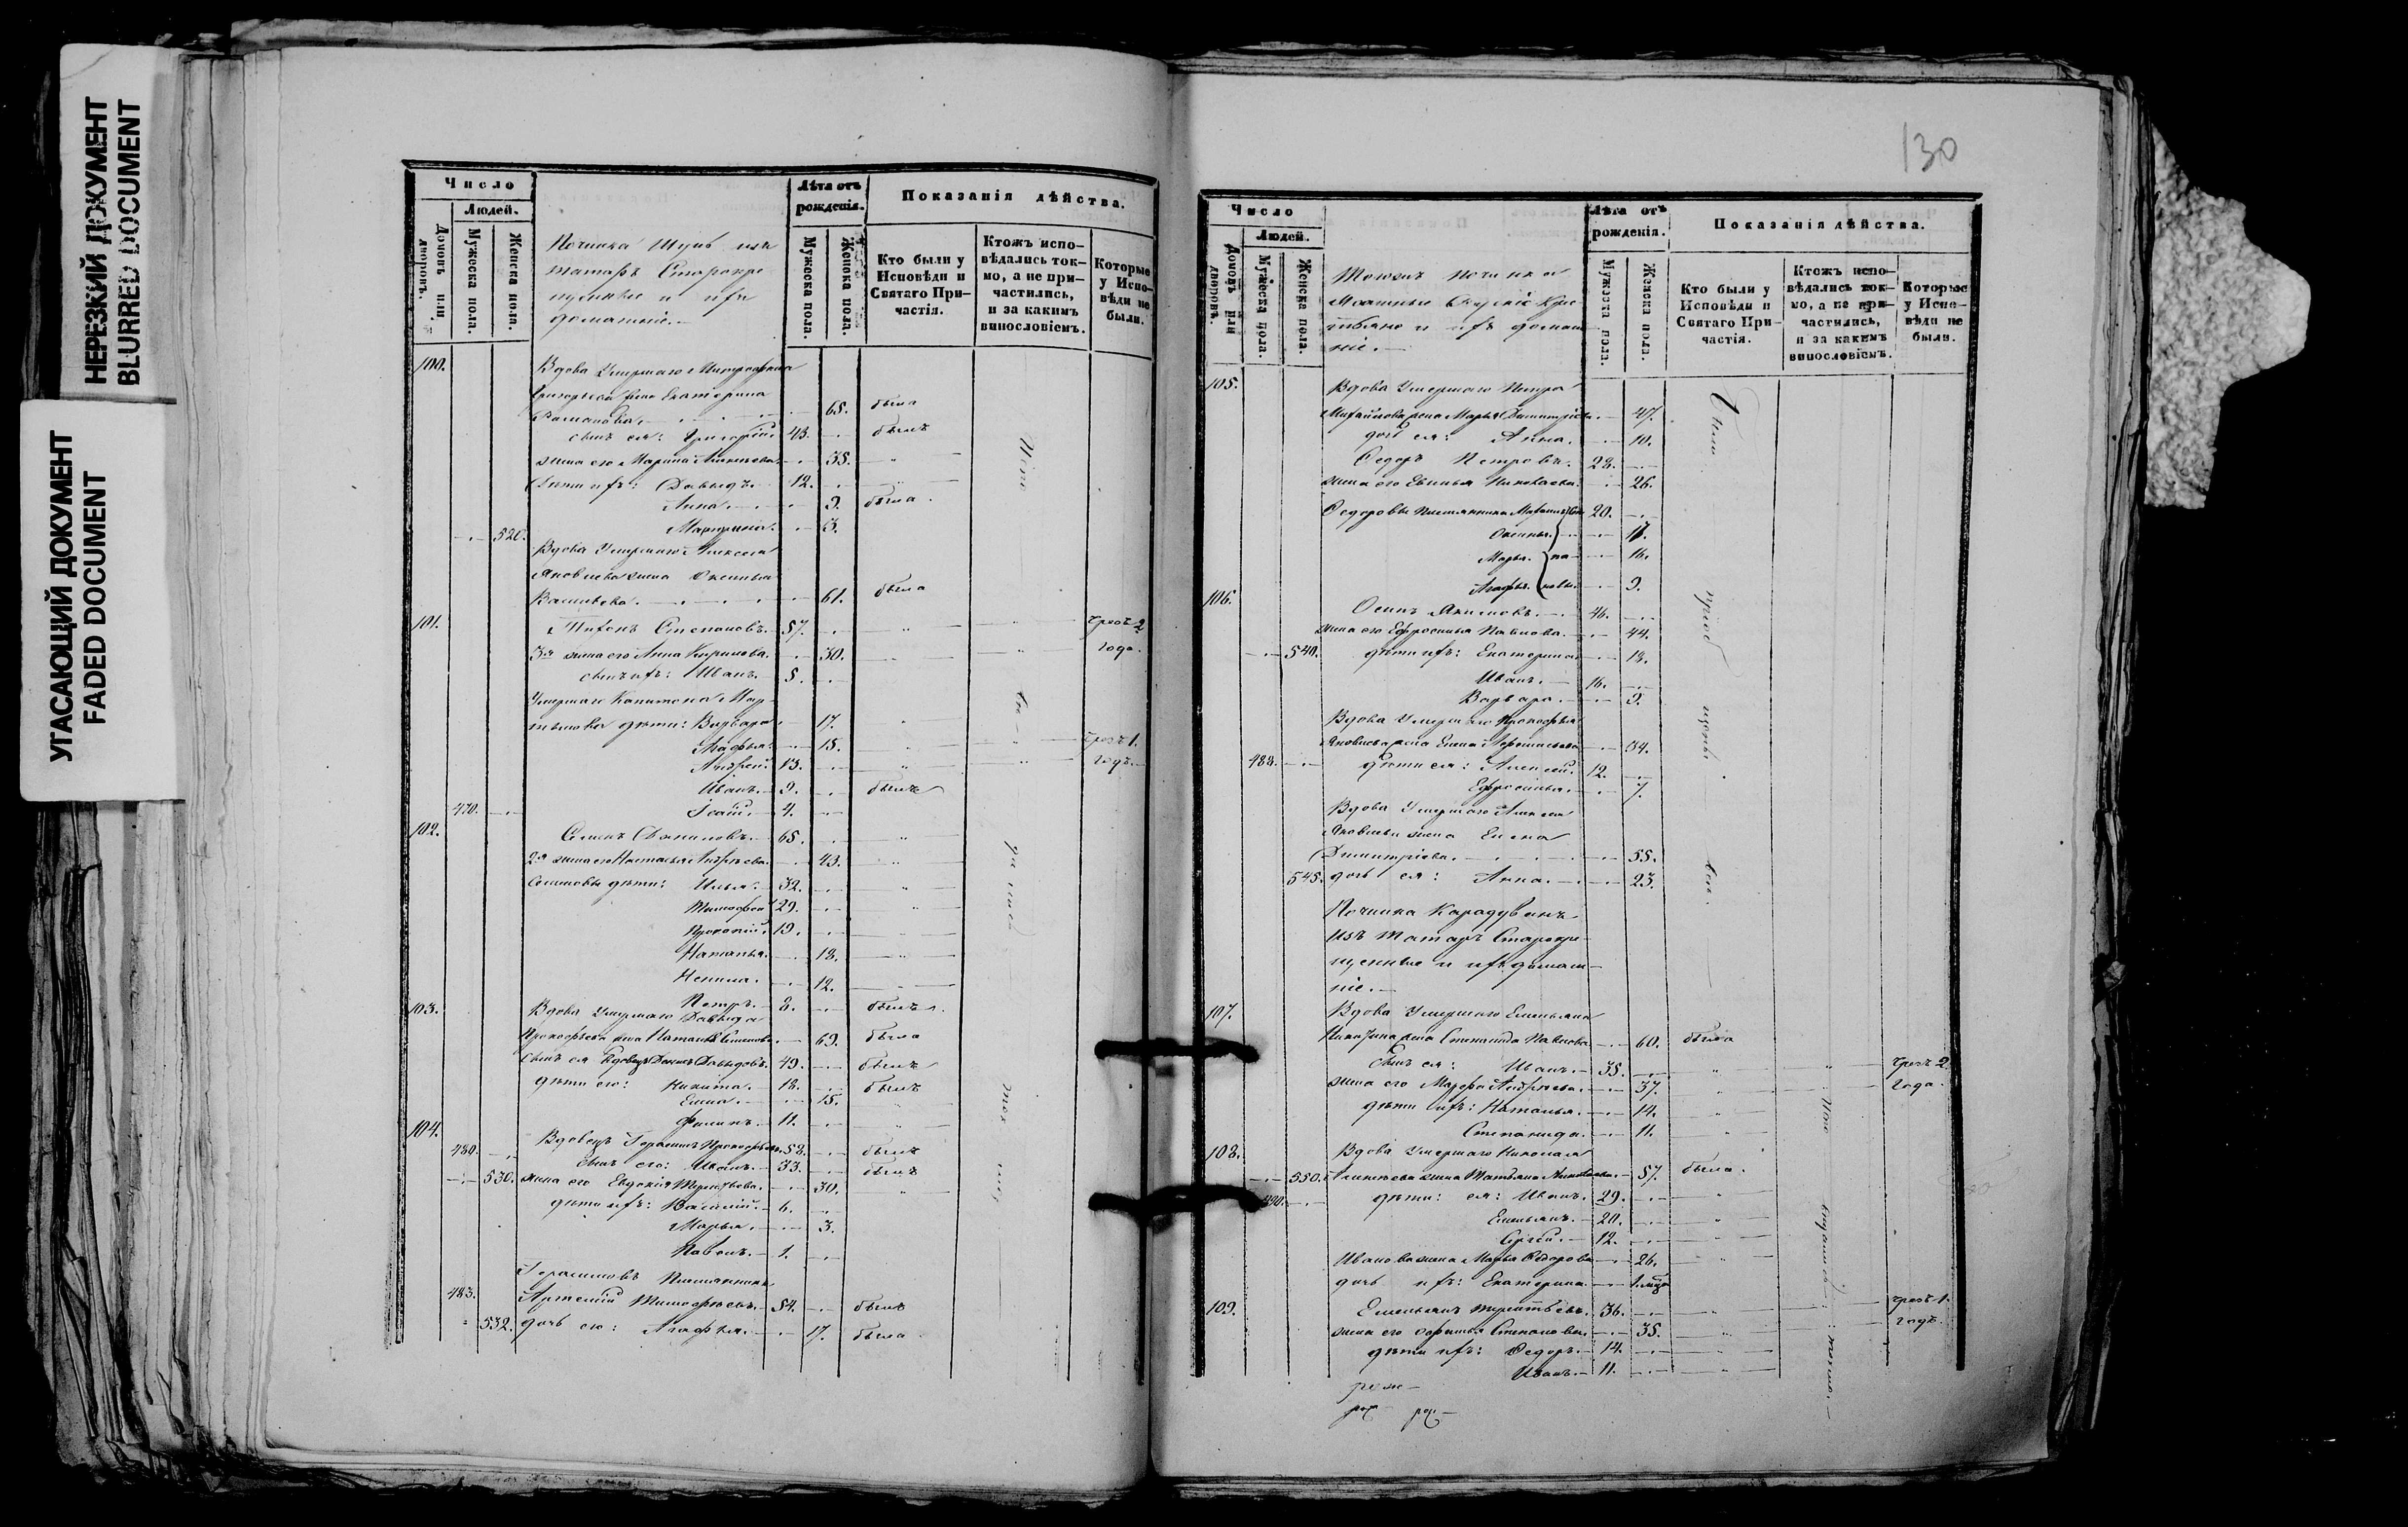 НЕРЕЗКИЙ ДОКУМЕНТ
BLURRED DOCUMENT
УГАСАЮЩИЙ ДОКУМЕНТ
FADED DOCUMENT
Число
Людей.
Домовъ или дворовъ.
Мужеска пола.
Женска пола.
Починка Шунь изъ
татаръ Старокре
щенные и ихъ
домашніе.—
Лѣта отъ рожденія.
Мужеска пола.
Женска пола.
Показанія дѣйства.
Кто были у Исповѣди и Святаго Причастія.
Ктожъ исповѣдались токмо, а не причастились, и за какимъ винословіемъ.
Которые у Исповѣди не были.
100.
Вдова Умершаго Митрофана
Григорьева жена Екатерина
Романова. 65. была
сынъ ея: Григорій. 43. былъ
жена его Марина Алексѣева. 35. "
Дѣти ихъ: Давыдъ. 12. "
Анна. 9. была
520. Марѳа. 3.
Вдова Умершаго Алексея
Яковлева жена Оксинья
Васильева. 61. была
101. Тихонъ Степановъ. 57. " чрезъ 2
3я жена его Анна Кирилова. 30. " года.
сынъ ихъ: Иванъ. 5.
Умершаго Капитона Мар
тынова дѣти: Варвара. 17. "
Агафья. 15. " чрезъ 1.
Андрей. 13. " годъ.
Иванъ. 9. былъ
470. Исай. 4.
102. Семенъ Даниловъ. 65. "
2я жена его Настасья Андреева. 43. "
Семеновы дѣти: Илья. 32. "
Тимофей 29. "
Прокопій. 19. "
Наталья. 18. "
Ненила. 12.
Петръ. 8. былъ.
103. Вдова Умершаго Давыда
Прокофьева жена Наталья Семенова. 69. была
сынъ ея Вдовецъ Денисъ Давыдовъ. 49. былъ
дѣти его: Никита. 18. былъ
Елена. 15. "
Филипъ. 11. "
104.
480. Вдовецъ Герасимъ Прокофьевъ. 58. былъ
сынъ его: Иванъ. 33. былъ
530. жена его Евдокія Терентьева. 30. "
дѣти ихъ: Василій. 6.
Марья. 3.
Павелъ. 1.
Герасимовъ Племянникъ
483. Артемій Тимофѣевъ. 54. былъ
532. дочь его: Агафья. 17. была
130
Число
Людей.
Домовъ или дворовъ.
Мужеска пола.
Женска пола.
Тогожъ починка
Крес
тьяне и ихъ домаш
ніе.—
Лѣта отъ рожденія.
Мужеска пола.
Женска пола.
Показанія дѣйства.
Кто были у Исповѣди и Святаго Причастія.
Ктожъ исповѣдались токмо, а не причастились, и за какимъ винословіемъ.
Которые у Исповѣди не были.
105. Вдова Умершаго Петра
Михайлова жена Марья Димитріева. 47.
дочь ея: Анна. 10.
Ѳедоръ Петровъ. 28.
жена его Евгенья Николаева. 26.
Ѳедоровы племянники Михаилъ 20.
Оксинья. 17.
Марья. 16.
Агафья. 9.
106. Осипъ Якимовъ. 46.
жена его Ефросинья Павлова. 44.
540. дѣти ихъ: Екатерина 18.
Иванъ. 16.
Варвара. 9.
Вдова Умершаго Прокофья
Яковлева жена Елена 34.
488. дѣти ея: Алексей. 12.
Ефросинья. 7.
Вдова Умершаго Алексея
Яковлева жена Елена
Димитріева. 55.
545. дочь ея: Анна. 23.
Починка Карадуванъ
Изъ татаръ Старокре
щенные и ихъ домаш
ніе.—
107. Вдова Умершаго Емельяна
жена Степанида Павлова 60. была
сынъ ея: Иванъ. 38. " чрезъ 2.
жена его Марфа Андреева. 37. " года.
дѣти ихъ: Наталья. 14. "
Степанида. 11. "
108. Вдова Умершаго Николая
550. Алексѣева жена Татьяна 57. была.
490. дѣти: ея: Иванъ. 29. "
Емельянъ. 20. "
Сергѣй. 12. "
Иванова жена Марья Ѳедорова 26. "
дочь ихъ: Екатерина.
109. Емельянъ Терентьевъ. 36. " чрезъ 1.
жена его Степанова. 35. " годъ.
дѣти ихъ: Ѳедоръ. 14. "
Иванъ. 11. "